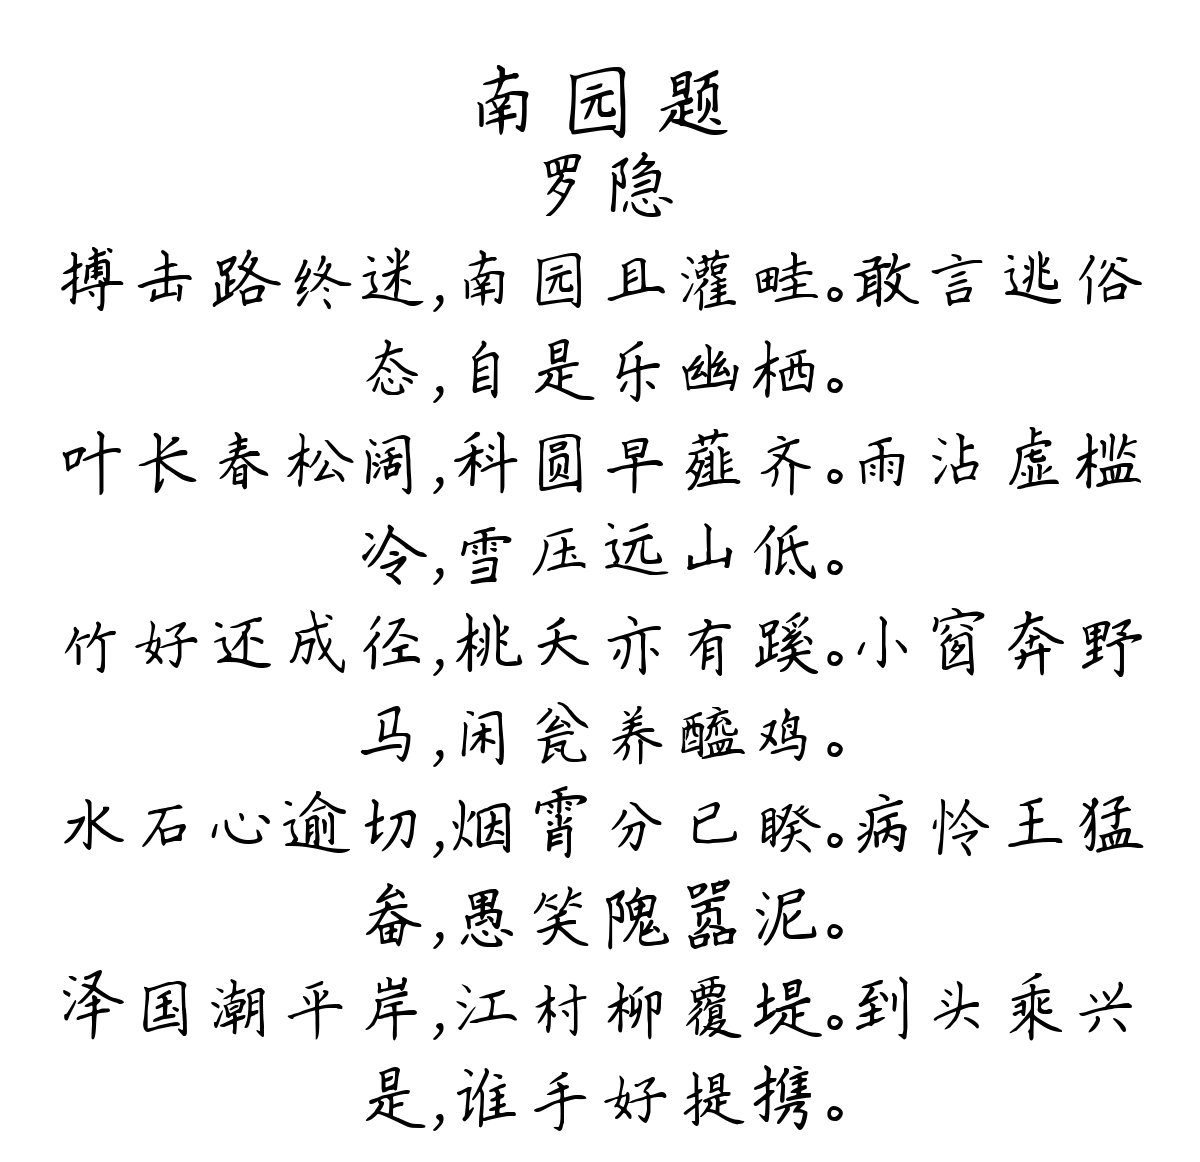 南园题
罗隐
搏击路终迷,南园且灌畦。敢言逃俗
态,自是乐幽栖。
叶长春松阔,科圆早薤齐。雨沾虚槛
冷,雪压远山低。
竹好还成径,桃夭亦有蹊。小窗奔野
马,闲瓮养醯鸡。
水石心逾切,烟霄分已睽。病怜王猛
畚,愚笑隗嚣泥。
泽国潮平岸,江村柳覆堤。到头乘兴
是,谁手好提携。